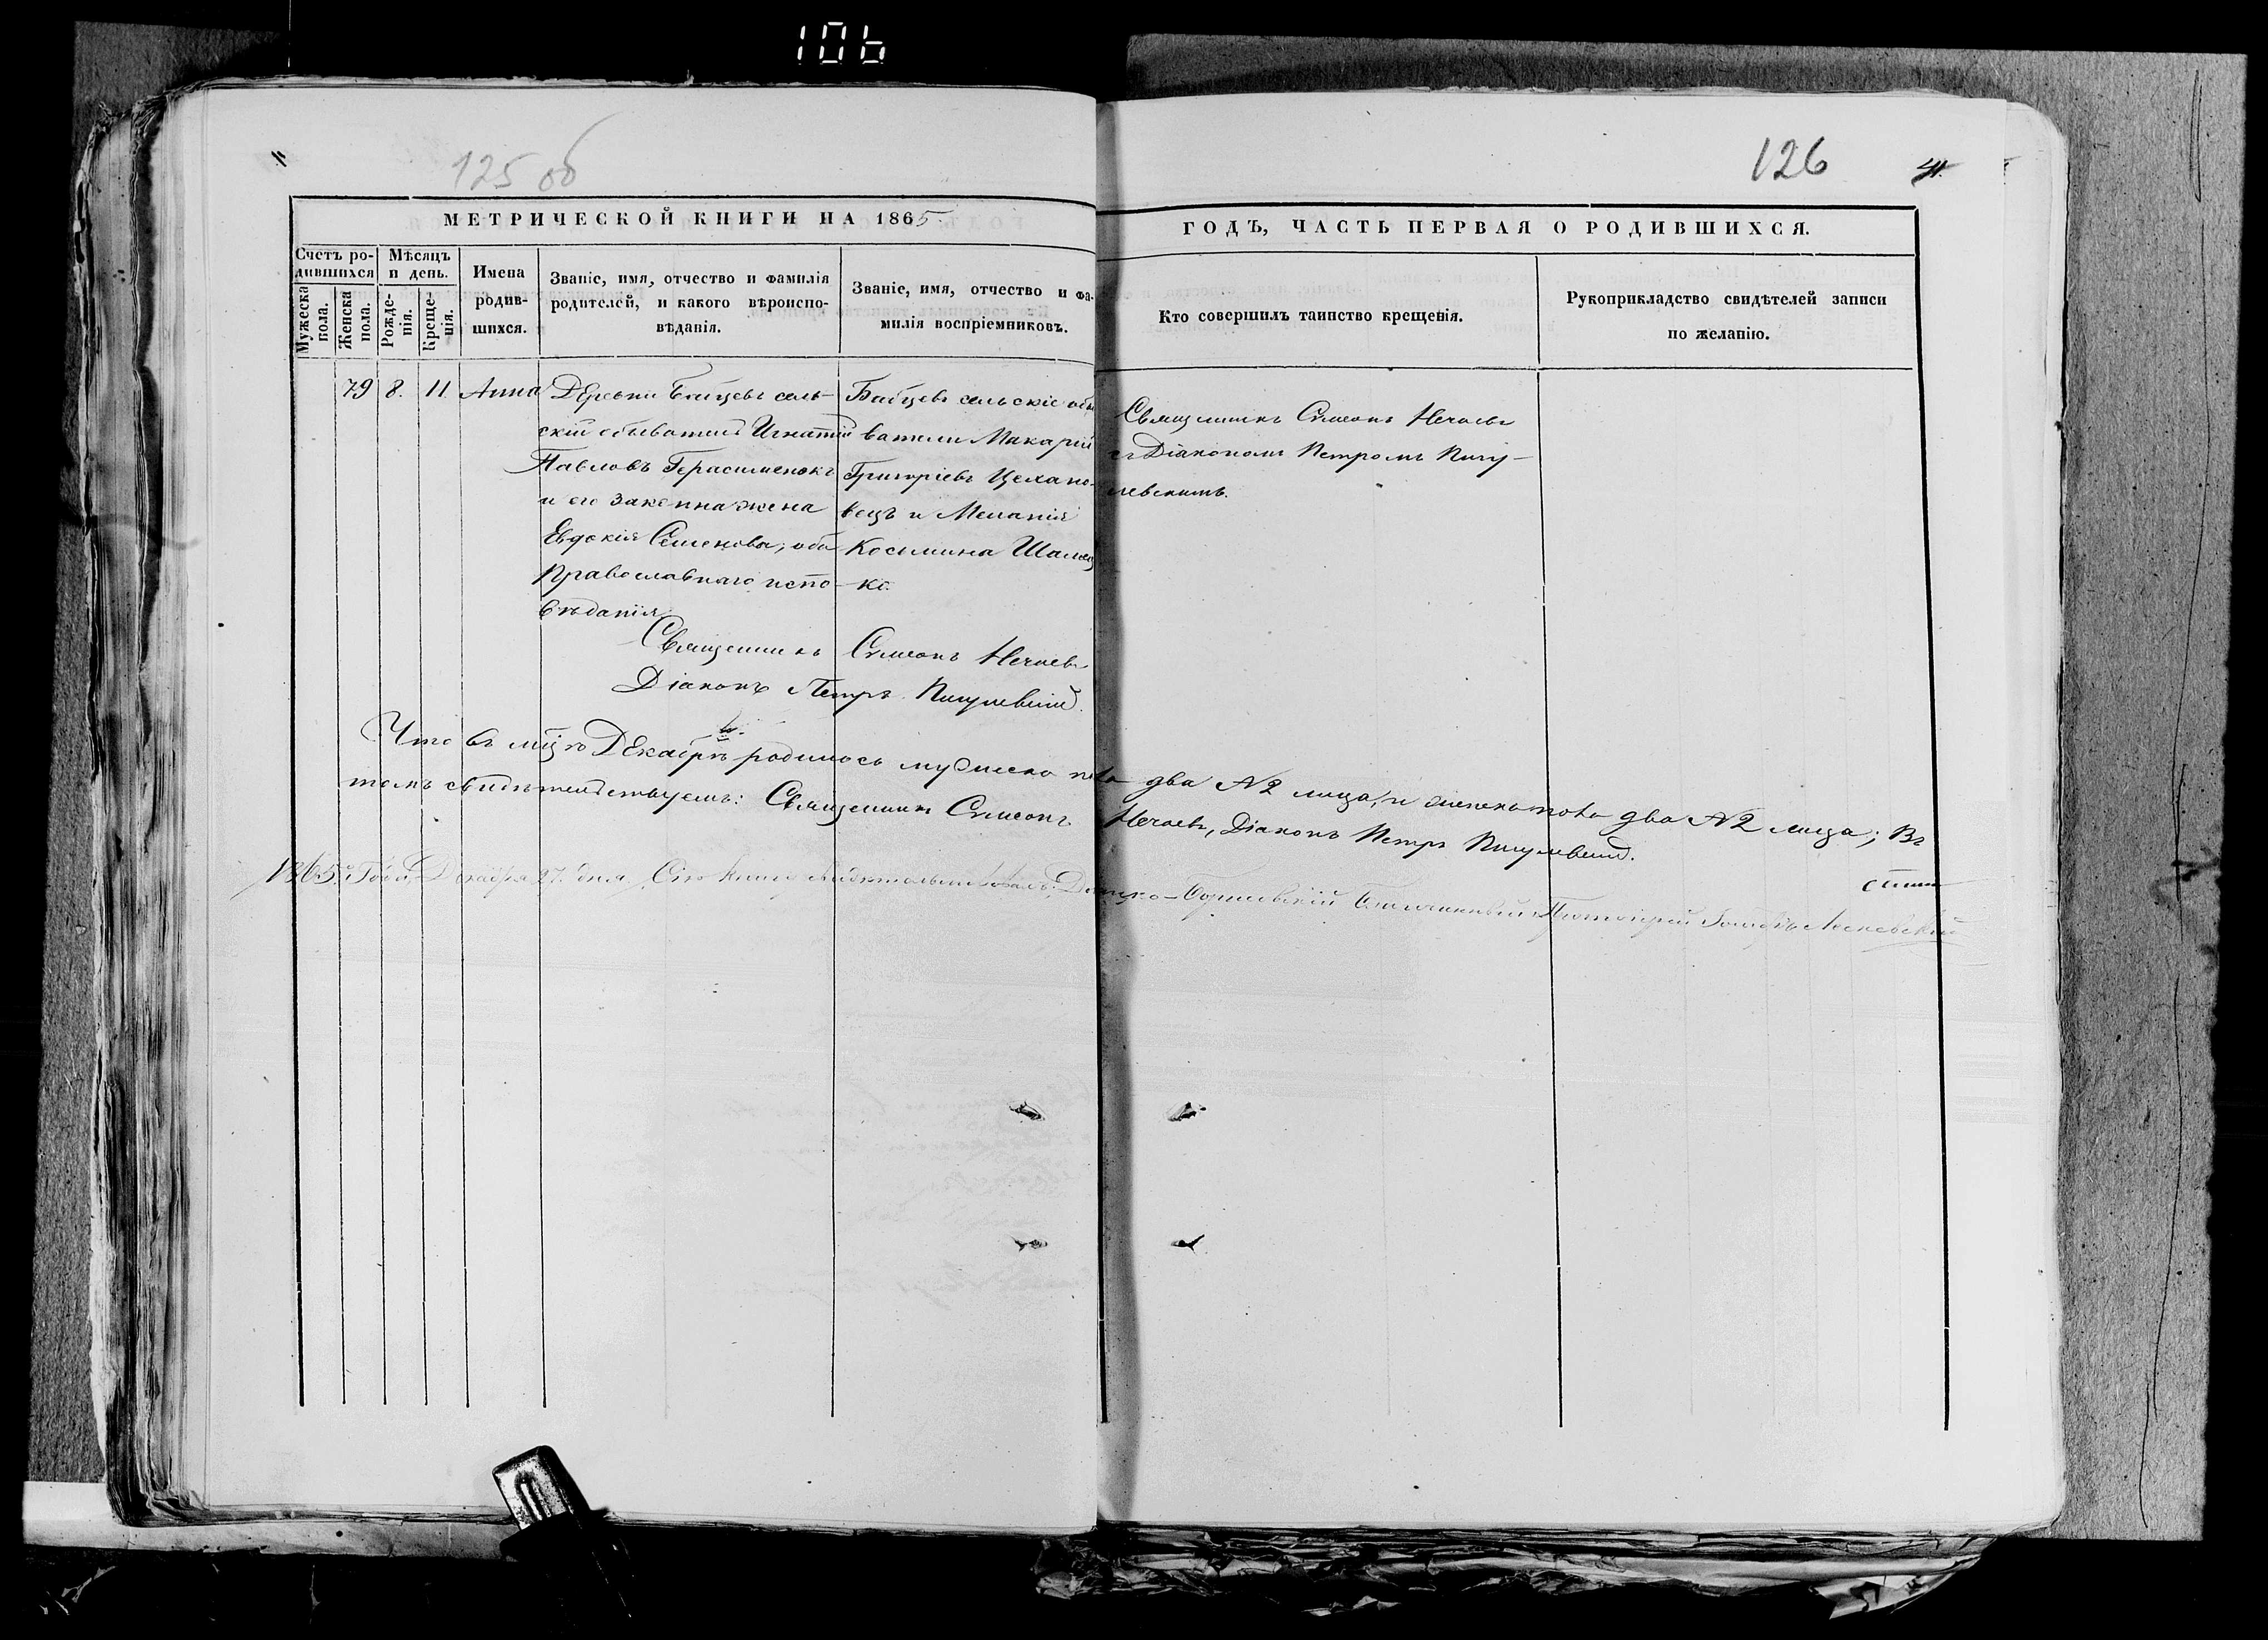 106
125 об
126
МЕТРИЧЕСКОЙ КНИГИ НА 1865
ГОДЪ, ЧАСТЬ ПЕРВАЯ О РОДИВШИХСЯ.
Счетъ ро-
дившихся
Мужеска
пола.
Женска
пола.
Мѣсяцъ
и день.
Рожде-
нія.
Креще-
нія.
Имена
родив-
шихся.
Званіе, имя, отчество и фамилія
родителей, и какого вѣроиспо-
вѣданія.
Званіе, имя, отчество и фа-
милія воспріемниковъ.
Кто совершилъ таинство крещенія.
Рукоприкладство свидѣтелей записи
по желанію.
79 8. 11. Анна
Деревни Бабцевъ сель-
скій обыватель Игнатій
Павловъ Герасименокъ
и его законна жена
Евдокія Семенова, оба
Православнаго испо-
вѣданія
Бабцевъ сельскіе обы
ватели Макарій
Григоріевъ Цехано-
вецъ и Меланія
Косьмина
ко.
Священникъ Сѵмеонъ Нечаевъ
съ Діакономъ Петромъ Пигу-
левскимъ.
Священникъ Сѵмеонъ Нечаевъ
Діаконъ Петръ Пигулевскій.
Что въ мцѣ Декабрѣ родилось мужеска пола два № 2 лица, и женска пола два № 2 лица; Въ
томъ свидѣтельствуемъ: Священникъ Сѵмеонъ Нечаевъ, Діаконъ Петръ Пигулевскій.
1865. Года, Декабря 27. дня, Сію книгу свидѣтельствовалъ: Протоіерей